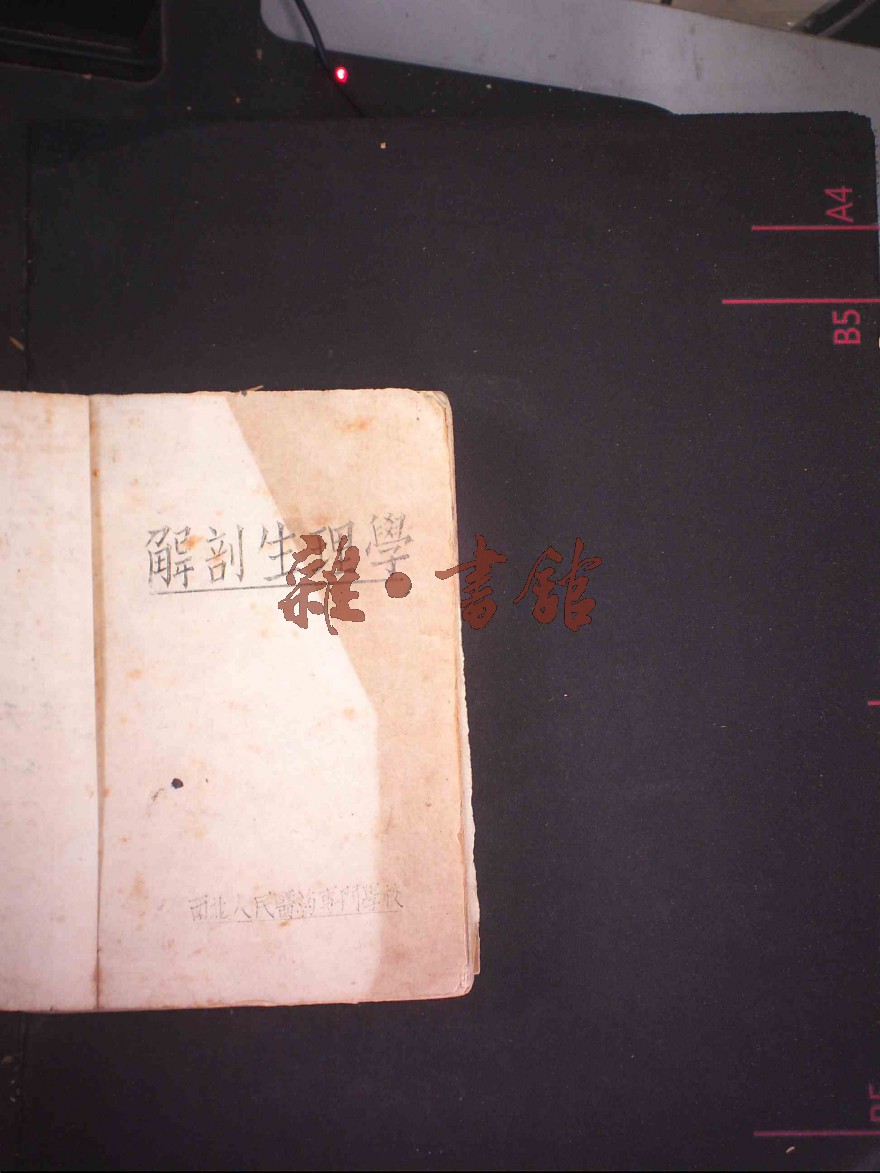 A4
B5
解剖生理學
雜·書館
西北人民醫药專門學校